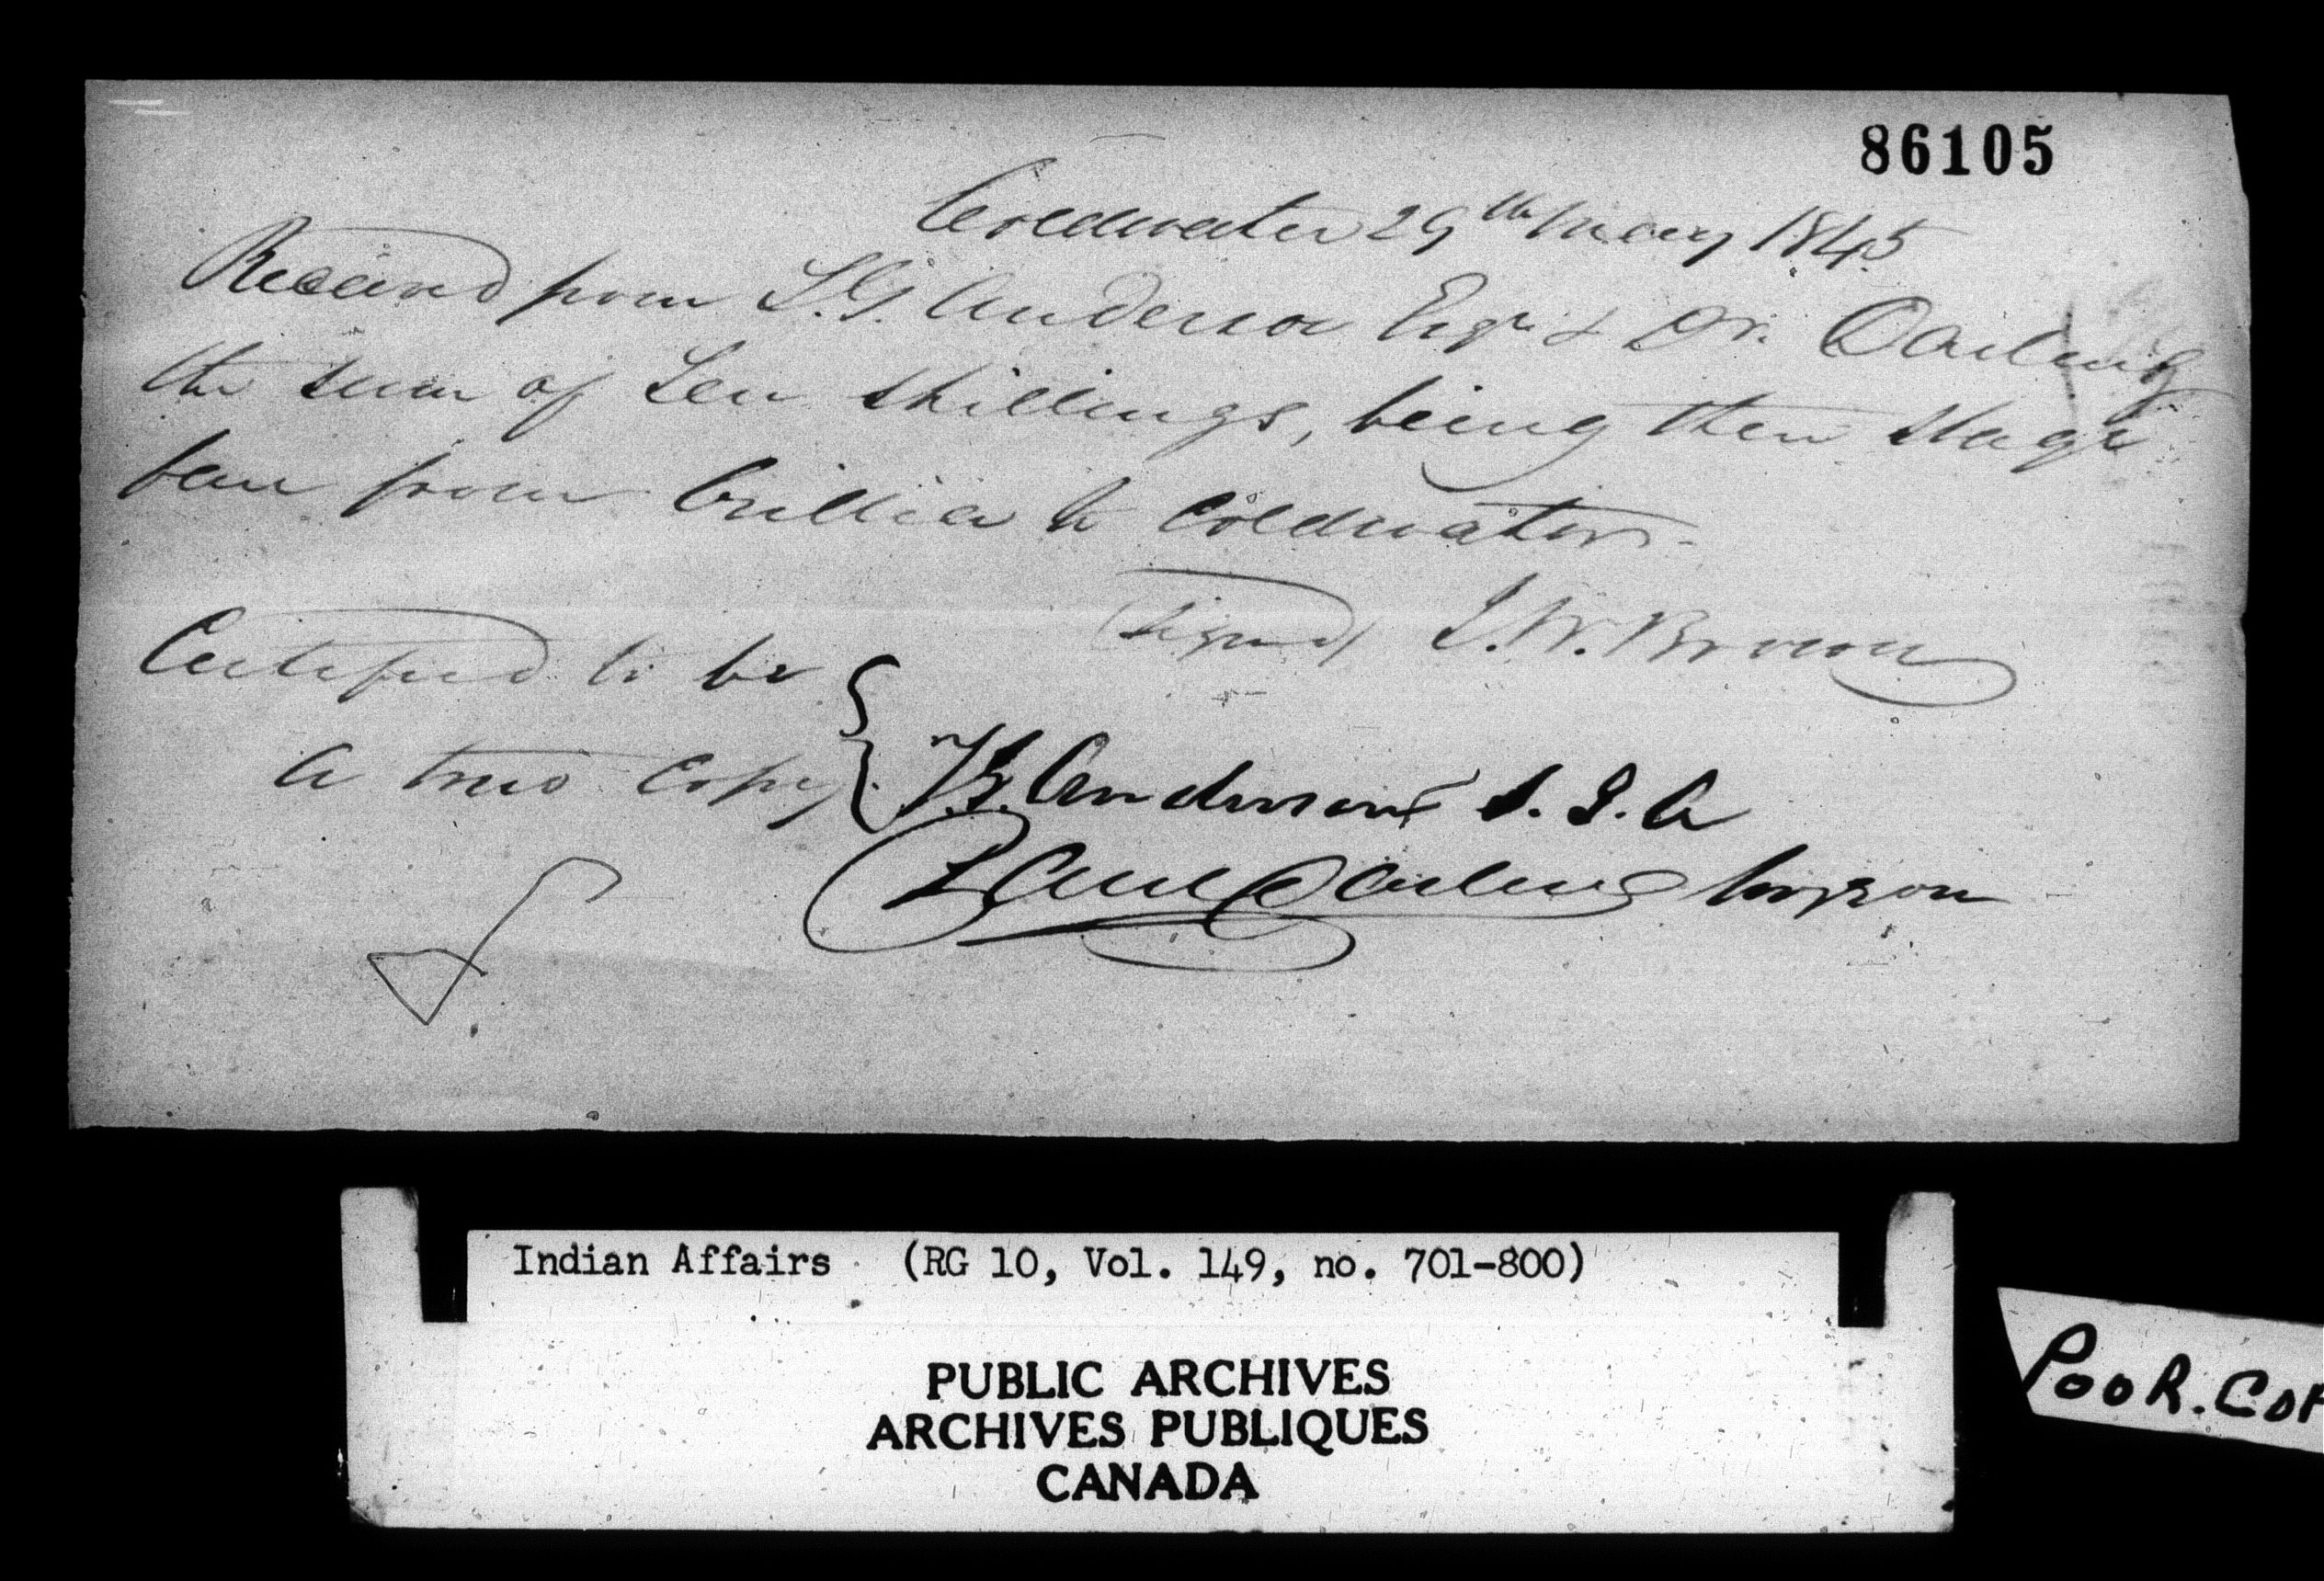 86105
Coldwater 29th May 1845
Received from T.G. Anderson Esqr & Dr. Darling
the sum of Ten Shillings, being their Stage
fare from Orillia to Coldwater.
(Signed) J. W. Brown
Certified to be
a true Copy
T.G. Anderson S. I. A
Darling Surgeon
Indian Affairs (RG 10, Vol. 149, no. 701-800)
PUBLIC ARCHIVES
ARCHIVES PUBLIQUES
CANADA
POOR.COP